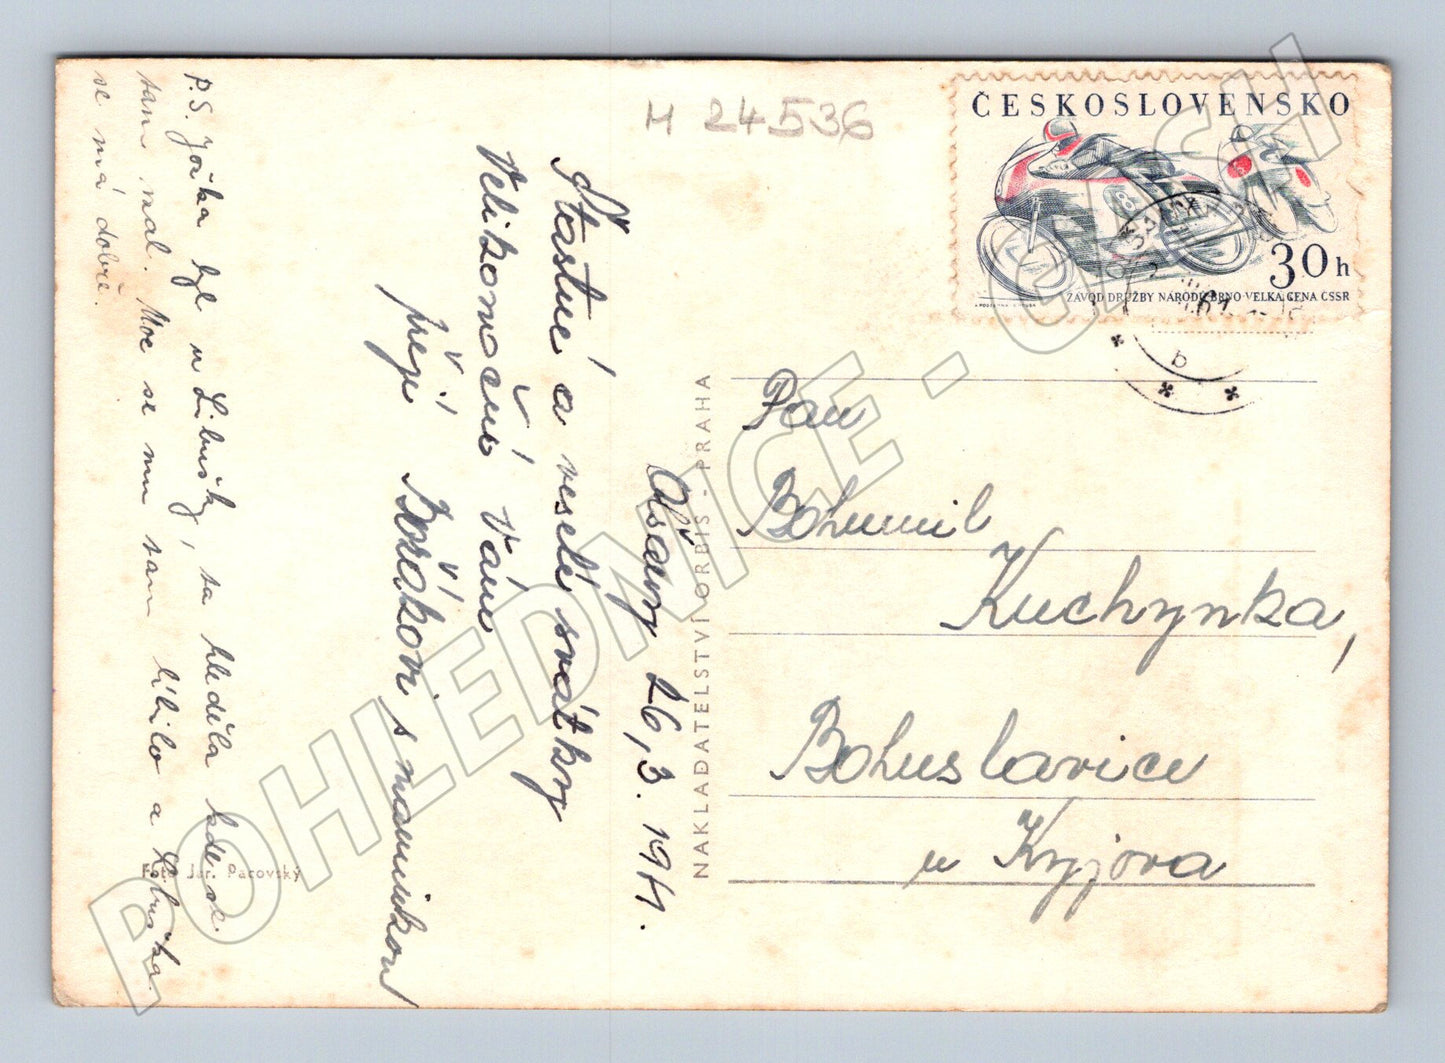 M 24536
ČESKOSLOVENSKO
30h
ZÁVOD DRUŽBY NÁRODŮ BRNO·VELKÁ CENA ČSSR
61
b
Pan
Bohumil
Kuchynka,
Bohuslavice
u Kyjova
NAKLADATELSTVÍ ORBIS - PRAHA
26,3. 19
Šťastné a veselé svátky
Velikonoční Vám
přeje s maminkou
P.S. Jožka byl u Libušky, ta hleděla kde se
tam vzal. Moc se mu tam líbilo a Libuška
se má dobře.
Foto Jar. Pacovský
POHLEDNICE - CZ/SH